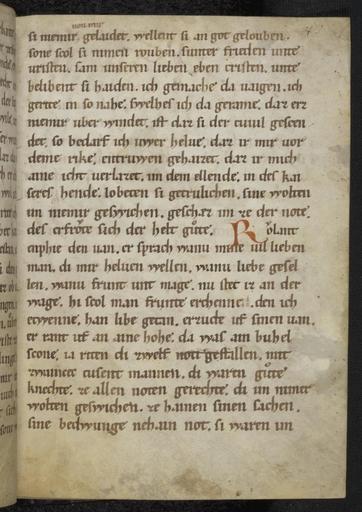 si nemir gelaidet. wellent si an got gelouben.
sone scol si nimen rouben. sunter friden unte
uristen. sam unseren lieben eben cristen. unte
belibent si haiden. ich gemache da uaigen. ich
gerite in so nahe. swelhes ich da geuame. daz erz
niemir uber windet. ist daz si der tiuuil gescen
det. so bedarf ich iwer helue. daz ir mir uor
deme rike. entriwen gehaizet. daz ir mich
ane icht uerlazet. in dem ellende. in des kai
seres hende. lobeten si getrulichen. sine wolten
im nemir geswichen. geschaz im ze der note.
des erfrote sich der helt gute. Rolant
enphie den uan. er sprach wanu mine uil lieben
man. di mir heluen wellen. wanu liebe gesel
len. wanu frunt unt mage. nu stet iz an der
wage. hi scol man frunte erchenne. den ich
etwenne. han libe getan. erzucte uf sinen uan.
er rant uf ain hohe. da was ain buhel
scone. ia riten di zwelf notgestallen. mit
zwainzec tusent mannen. di waren gute
knechte. ze allen noten gerechte. di im nimir
wolten geswichen. ze hainen sinen sachen.
sine bedwunge nehain not. si waren im